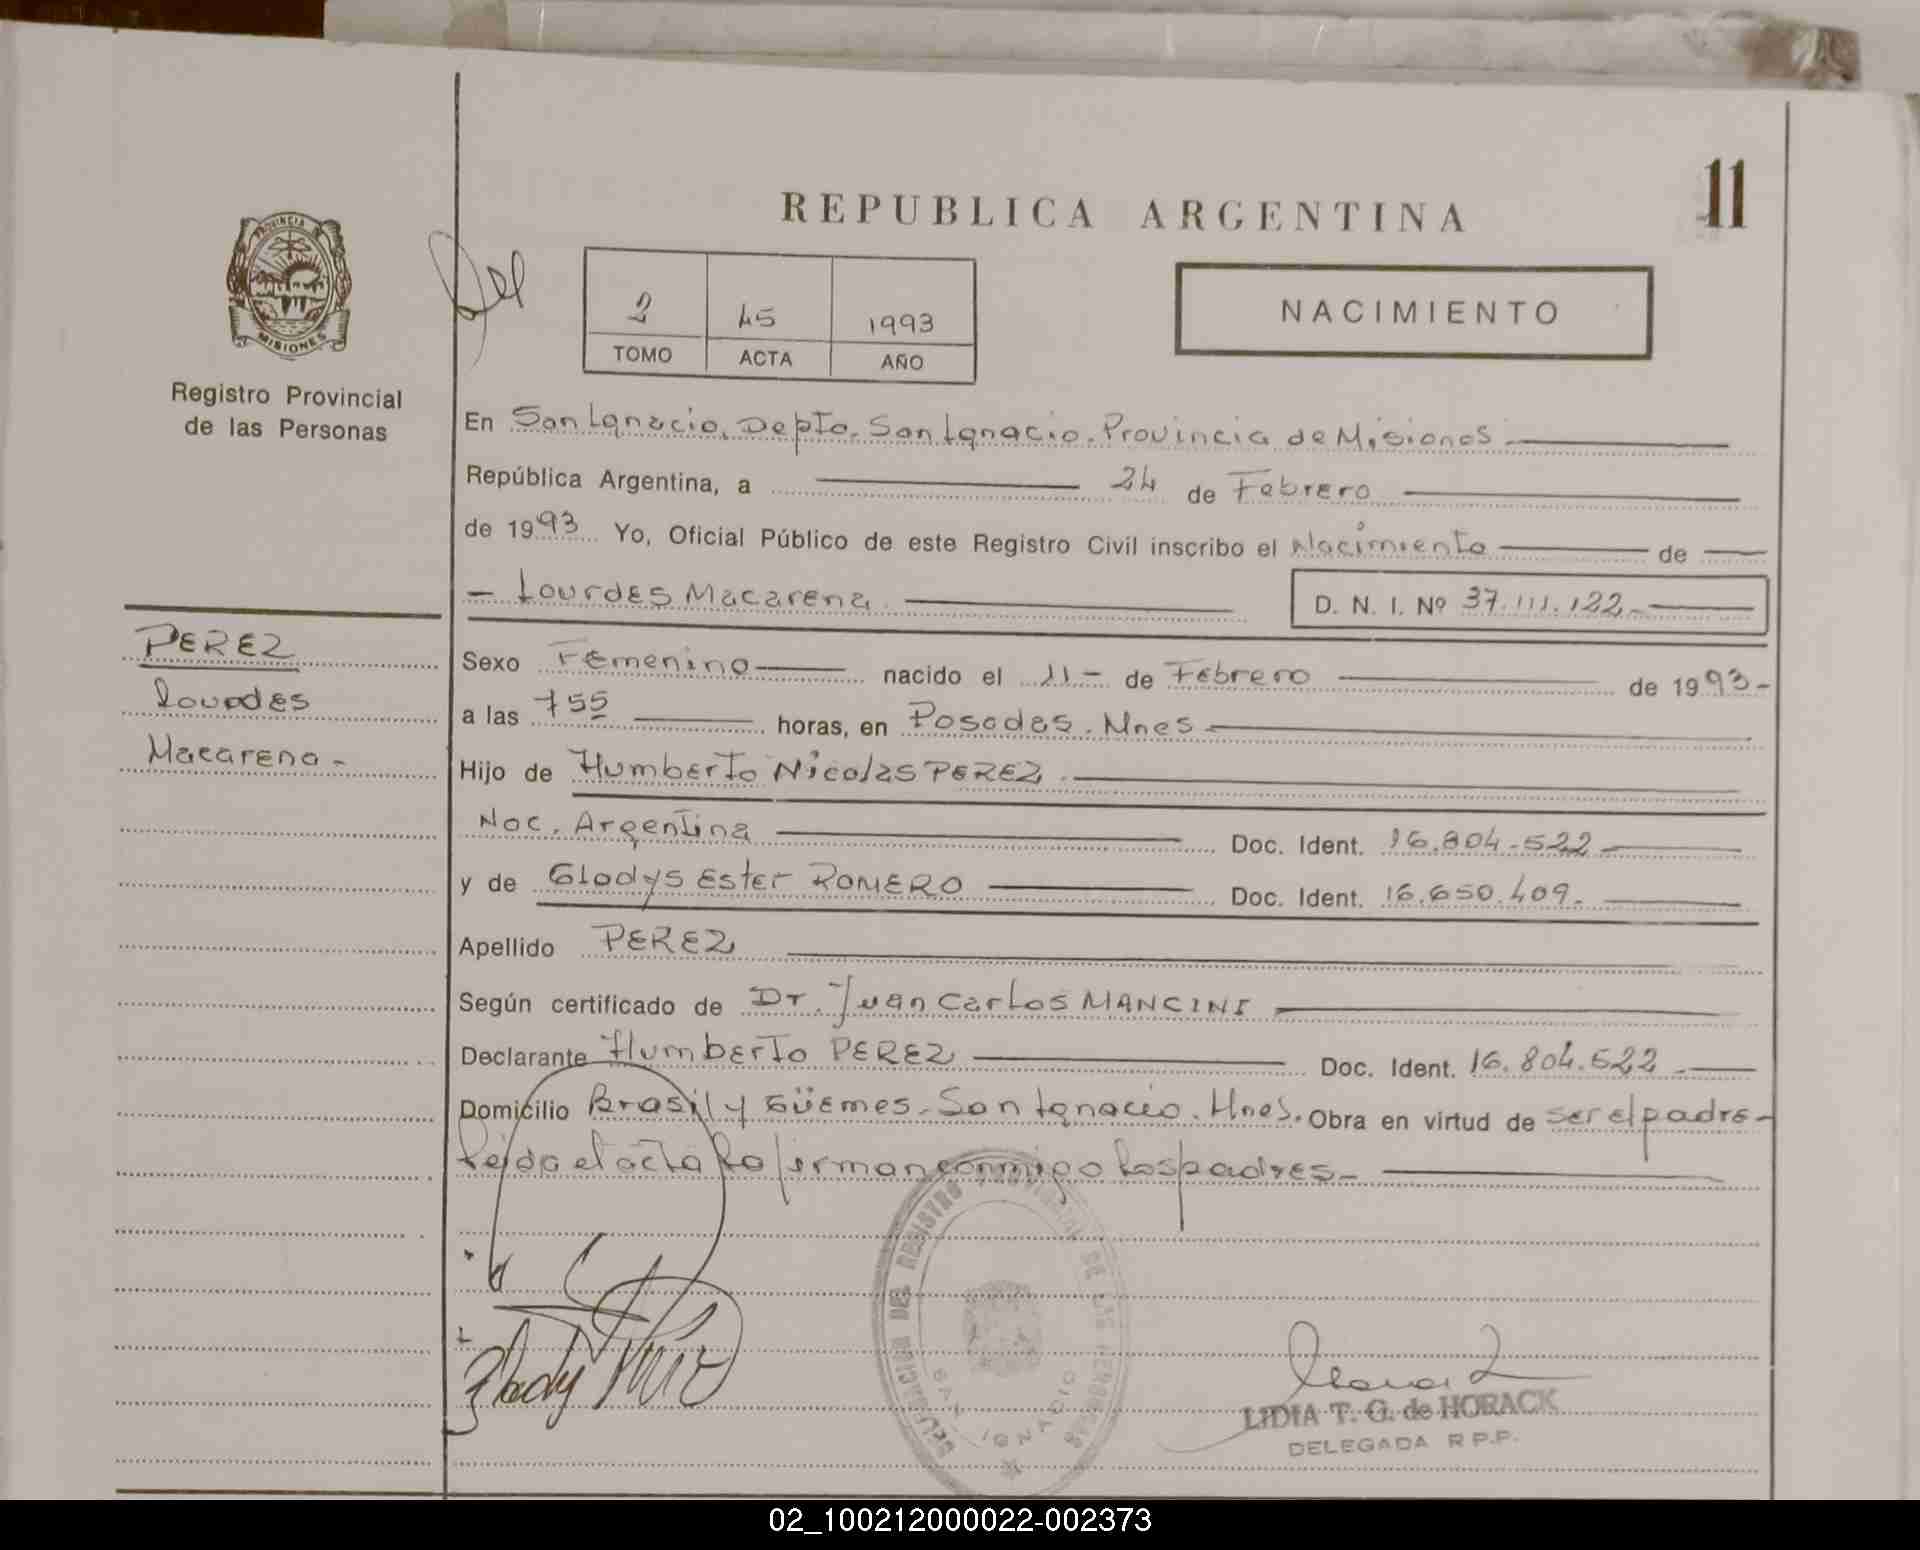 11
REPUBLICA ARGENTINA
PROVINCIA DE
MISIONES
Registro Provincial
de las Personas
2 45 1993
TOMO ACTA AÑO
NACIMIENTO
En San Ignacio, Depto. San Ignacio. Provincia de Misiones
República Argentina, a 24 de Febrero
de 1993 Yo, Oficial Público de este Registro Civil inscribo el Nacimiento de
- Lourdes Macarena D. N. I. Nº 37.111.122.-
PEREZ
Lourdes
Macarena -
Sexo Femenino nacido el 11- de Febrero de 1993-
a las 7 55 horas, en Posadas. Mnes
Hijo de Humberto Nicolas PEREZ.
Nac. Argentina Doc. Ident. 16.804.522
y de Gladys Ester ROMERO Doc. Ident. 16.650.409.
Apellido PEREZ
Según certificado de Dr. Juan Carlos MANCINI
Declarante Humberto PEREZ Doc. Ident. 16.804.522
Domicilio Brasil y Güemes. San Ignacio. Mnes. Obra en virtud de ser el padre-
Leida el acta la firman conmigo los padres-
DEL REGISTRO PROVINCIAL DE LAS PERSONAS
SAN IGNACIO
LIDIA T. G. de HORACK
DELEGADA R.P.P.
02_100212000022-002373